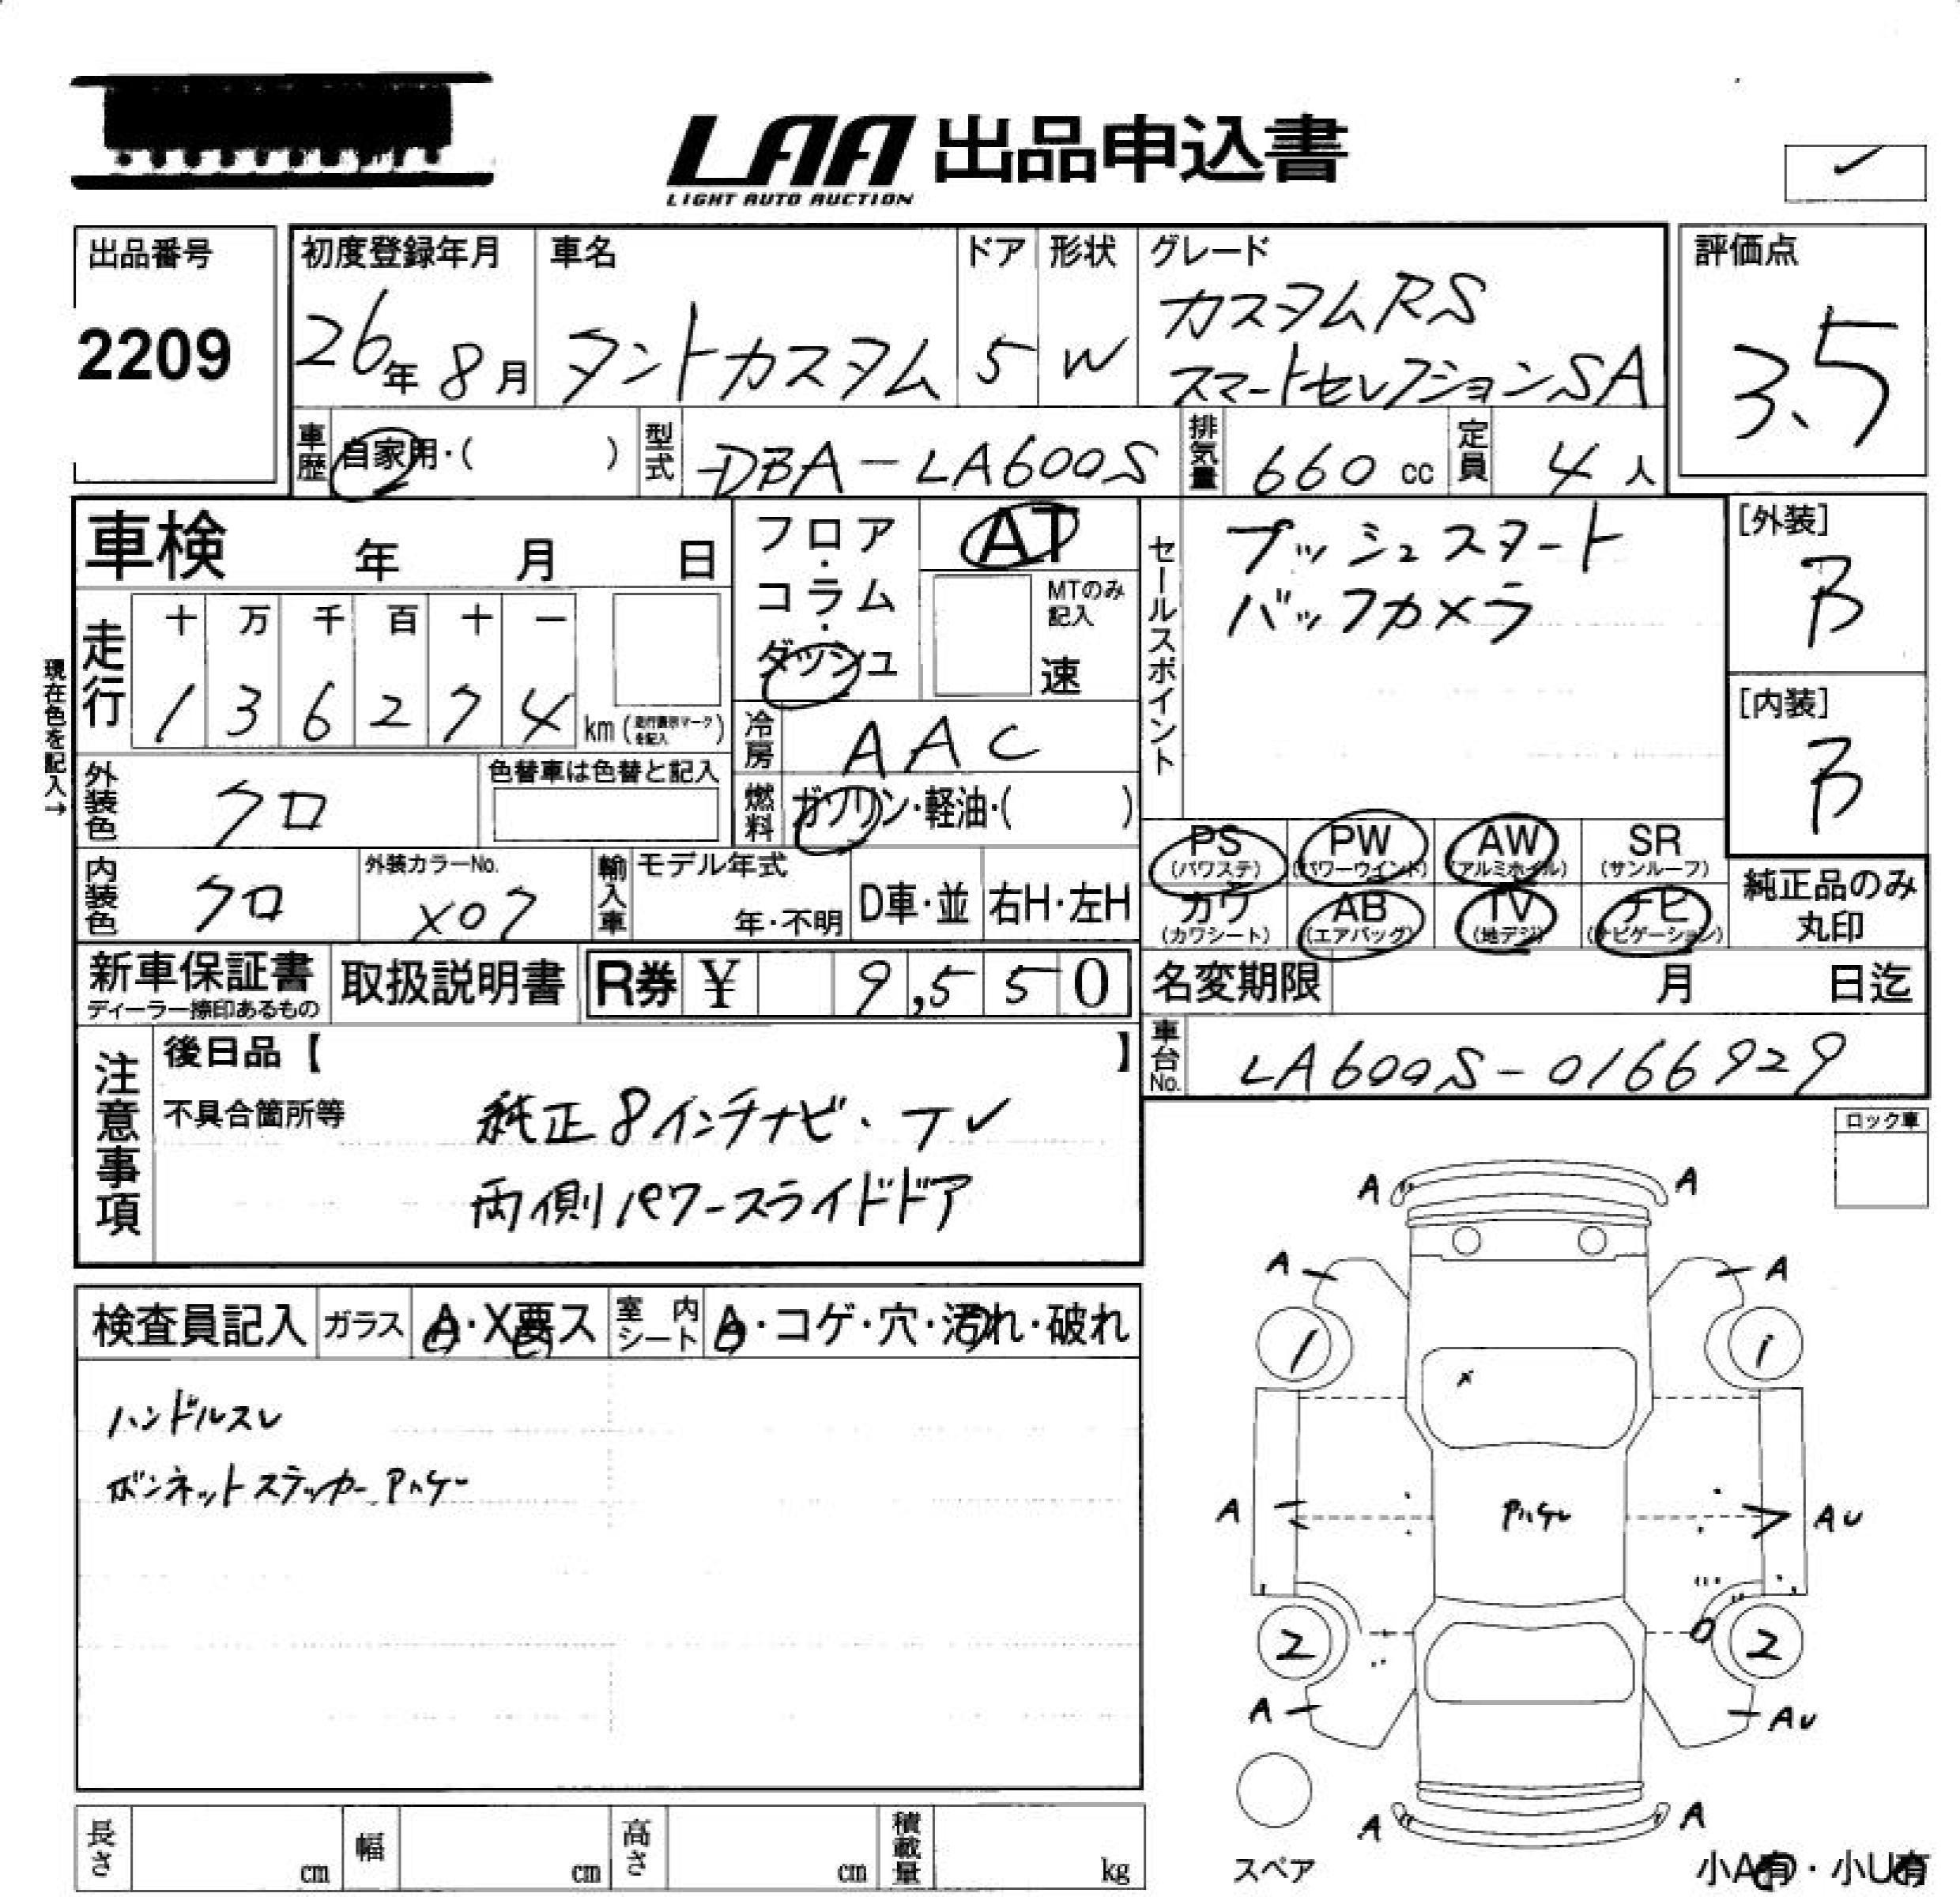 LAA 出品申込書
LIGHT AUTO AUCTION
出品番号
2209
初度登録年月
26年 8月
車名
タントカスタム
ドア
5
形状
W
グレード
カスタムRS
スマートセレクションSA
評価点
3.5
車歴
自家用・( )
型式
DBA-LA600S
排気量
660 cc
定員
4 人
車検 年 月 日
走行
十 万 千 百 十 一
1 3 6 2 7 4
km (走行表示マークを記入)
現在色を記入→
外装色
クロ
色替車は色替と記入
内装色
クロ
外装カラーNo.
X07
フロア・
コラム・
ダッシュ
AT
MTのみ
記入
速
冷房
AAC
燃料
ガソリン・軽油・( )
輸入車
モデル年式
年・不明
D車・並
右H・左H
セールスポイント
プッシュスタート
バックカメラ
[外装]
B
[内装]
B
PS
(パワステ)
PW
(パワーウインド)
AW
(アルミホイル)
SR
(サンルーフ)
カワ
(カワシート)
AB
(エアバッグ)
TV
(地デジ)
ナビ
(ナビゲーション)
純正品のみ
丸印
新車保証書
ディーラー捺印あるもの
取扱説明書
R券 ¥ 9,550
名変期限 月 日迄
車台No.
LA600S-0166929
注意事項
後日品【 】
不具合箇所等
純正8インチナビ・TV
両側パワースライドドア
ロック車
検査員記入
ガラス
A・X要ス
室内
シート
A・コゲ・穴・汚れ・破れ
ハンドルスレ
ボンネットステッカー
A A
A A
1 1
X
A AU
2 2
A AU
A A
スペア
小A有・小U有
長さ cm
幅 cm
高さ cm
積載量 kg